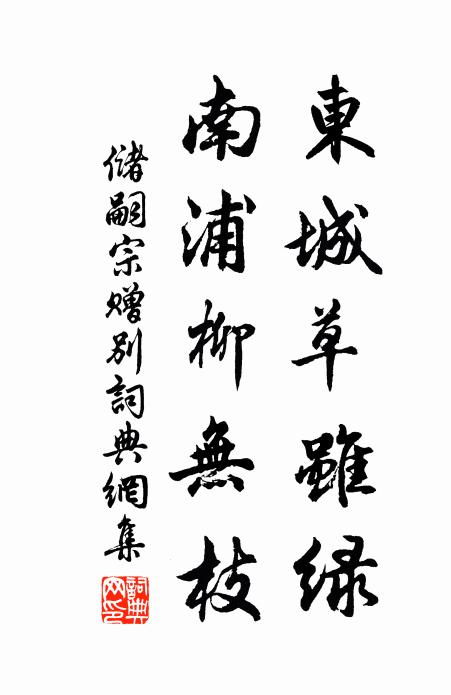 東城草雖绿
南浦柳無枝
儲嗣宗贈别詞典網集